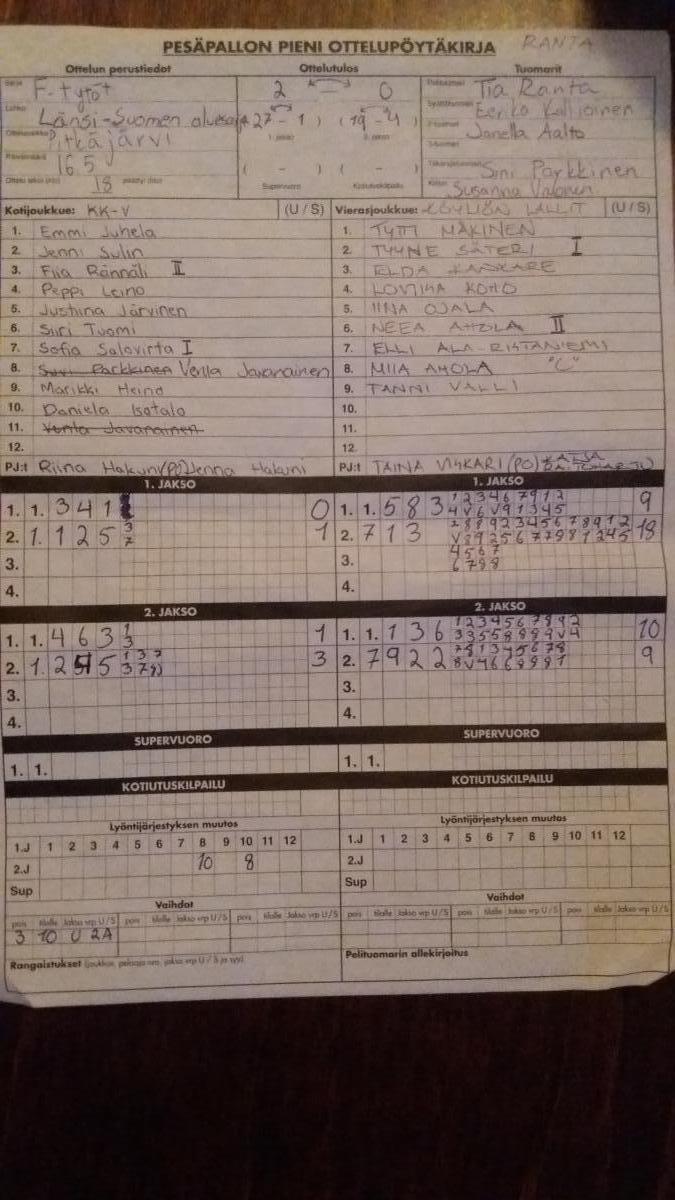 PESÄPALLON PIENI OTTELUPÖYTÄKIRJA RANTA
Ottelun perustiedot Ottelutulos Tuomarit
F-tytöt 2 0 Tia Ranta
Länsi-Suomen 27 - 1 ) ( 19 - 4 ) Eerika Kallioinen
Pitkäjärvi Janella Aalto
16 5 ( - ) ( - ) Sini Parkkinen
18 Supervuoro Kotiutuskilpailu Susanna Valonen
Kotijoukkue: KK-V (U / S) Vierasjoukkue: KÖYLIÖN LALLIT (U / S)
1. Emmi Juhela 1. TYTTI MÄKINEN
2. Jenni Sulin 2. TYYNE SÄTERI I
3. Fiia Rännäli II 3. ELDA KANKARE
4. Peppi Leino 4. LOVIISA KOHO
5. Justiina Järvinen 5. IINA OJALA
6. Siiri Tuomi 6. NEEA AHOLA II
7. Sofia Salovirta I 7. ELLI ALA-RIHTANIEMI
8. Parkkinen Venla Javanainen 8. MIIA AHOLA "C"
9. Marikki Heino 9. TANNI VALLI
10. Daniela Isotalo 10.
11. Venla Javanainen 11.
12. 12.
PJ:t Riina Hakuni (PJ) Jenna Hakuni PJ:t TAINA VISKARI (PO) KATJA
1. JAKSO 1. JAKSO
1. 1. 3 4 1 0 1. 1. 5 8 3 1 2 3 4 6 7 9 1 2 9
4 V 6 V 9 1 3 4 5
2. 1. 1 2 5 3 1 2. 7 1 3 18
7
3. 3. 4 5 6 7
6 7 9 8
4. 4.
2. JAKSO 2. JAKSO
1. 1. 4 6 3 1 1 1. 1. 1 3 6 1 2 3 4 5 6 7 8 9 2 10
3 3 3 5 5 8 8 8 9 V 4
2. 1. 2 5 1 3 7 3 2. 7 9 2 2 7 8 1 3 4 5 6 7 8 9
3. 3.
4. 4.
SUPERVUORO SUPERVUORO
1. 1. 1. 1.
KOTIUTUSKILPAILU KOTIUTUSKILPAILU
Lyöntijärjestyksen muutos Lyöntijärjestyksen muutos
1.J 1 2 3 4 5 6 7 8 9 10 11 12 1.J 1 2 3 4 5 6 7 8 9 10 11 12
2.J 10 8 2.J
Sup Sup
Vaihdot Vaihdot
pois tilalle Jakso vrp U / S pois tilalle Jakso vrp U / S pois tilalle Jakso vrp U / S pois tilalle Jakso vrp U / S pois tilalle Jakso vrp U / S pois tilalle Jakso vrp U / S
3 10 U 2A
Rangaistukset (joukkue, pelaaja nro, jakso vrp U / S ja syy) Pelituomarin allekirjoitus